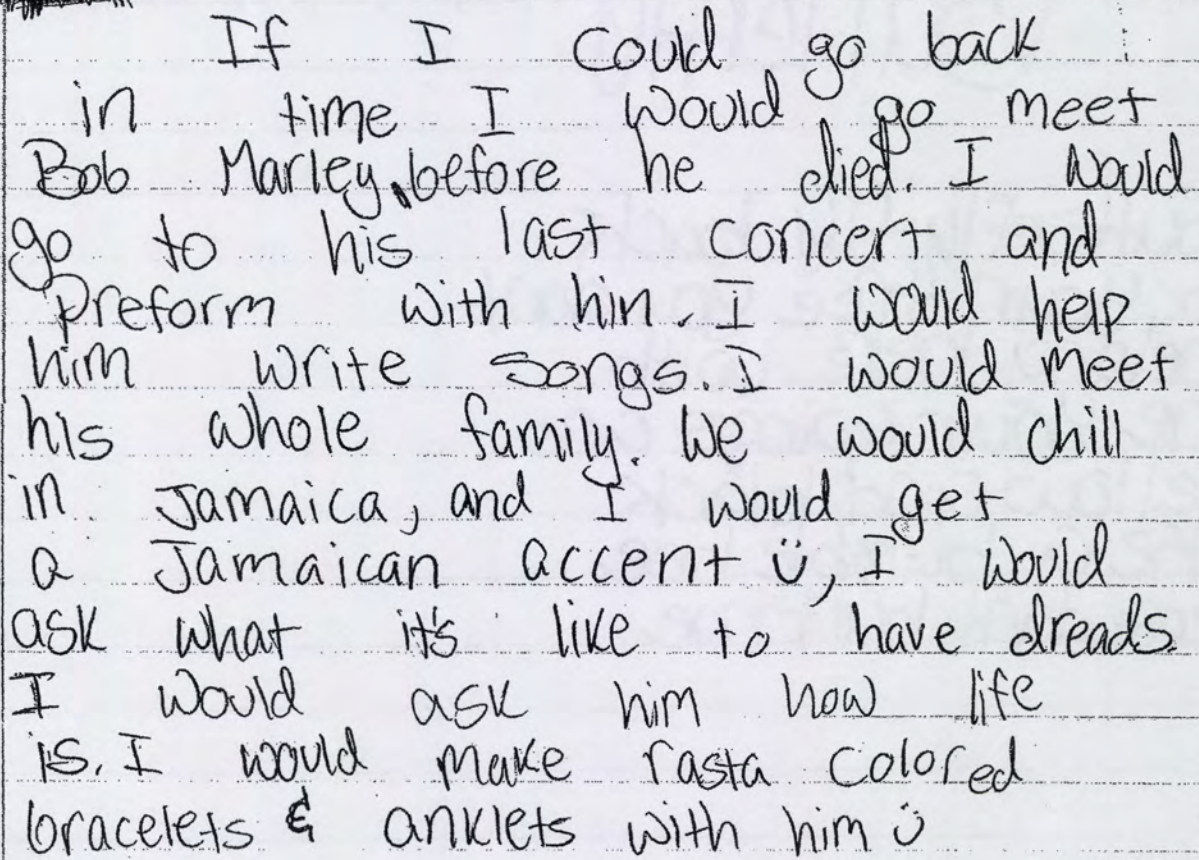 If I could go back
in time I would go meet
Bob Marley, before he died. I would
go to his last concert and
preform with hin. I would help
him write songs. I would meet
his whole family. We would chill
in Jamaica, and I would get
a Jamaican accent ü, I would
ask what it's like to have dreads.
I would ask him how life
is. I would make rasta colored
bracelets & anklets with him ü